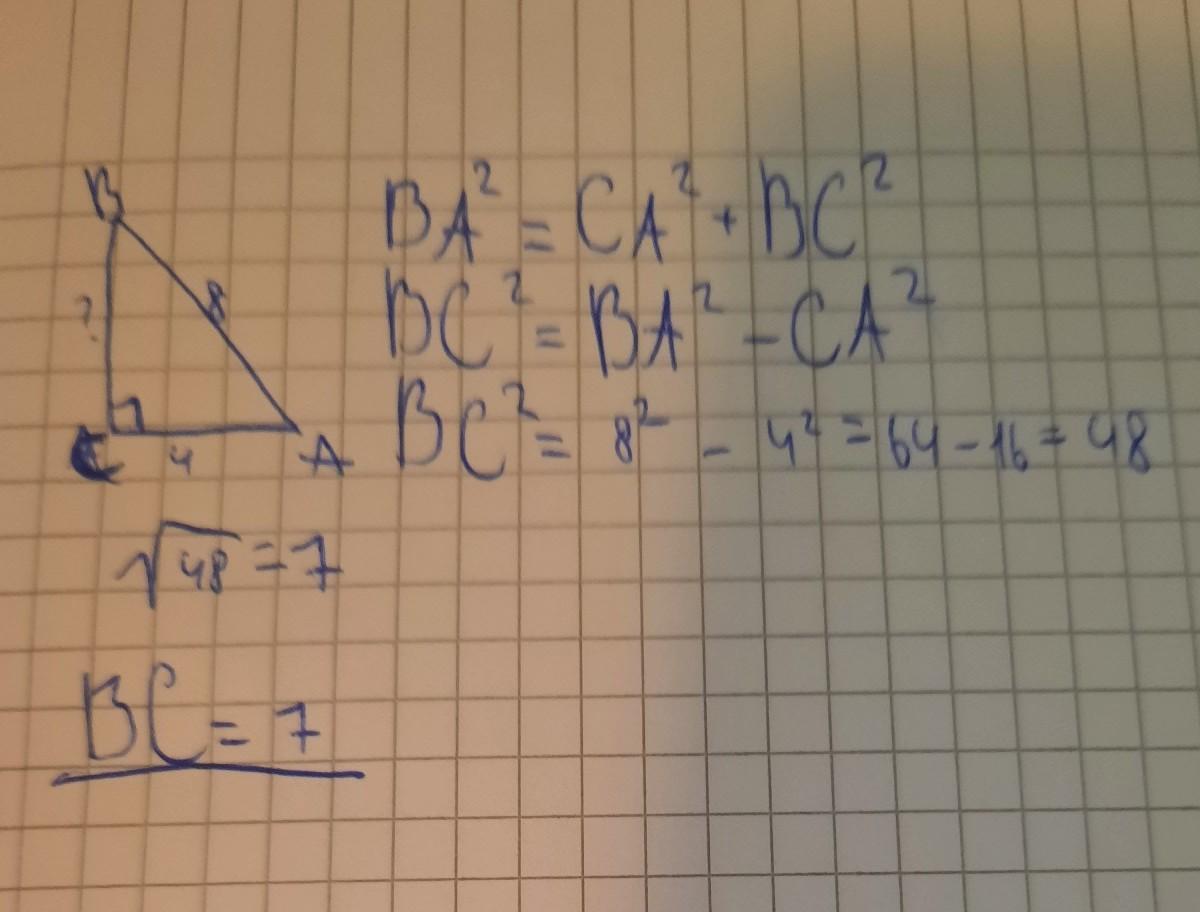 B
BA² = CA² + BC²
?
8
BC² = BA² - CA²
C
4
A
BC² = 8² - 4² = 64 - 16 = 48
√48 = 7
BC = 7